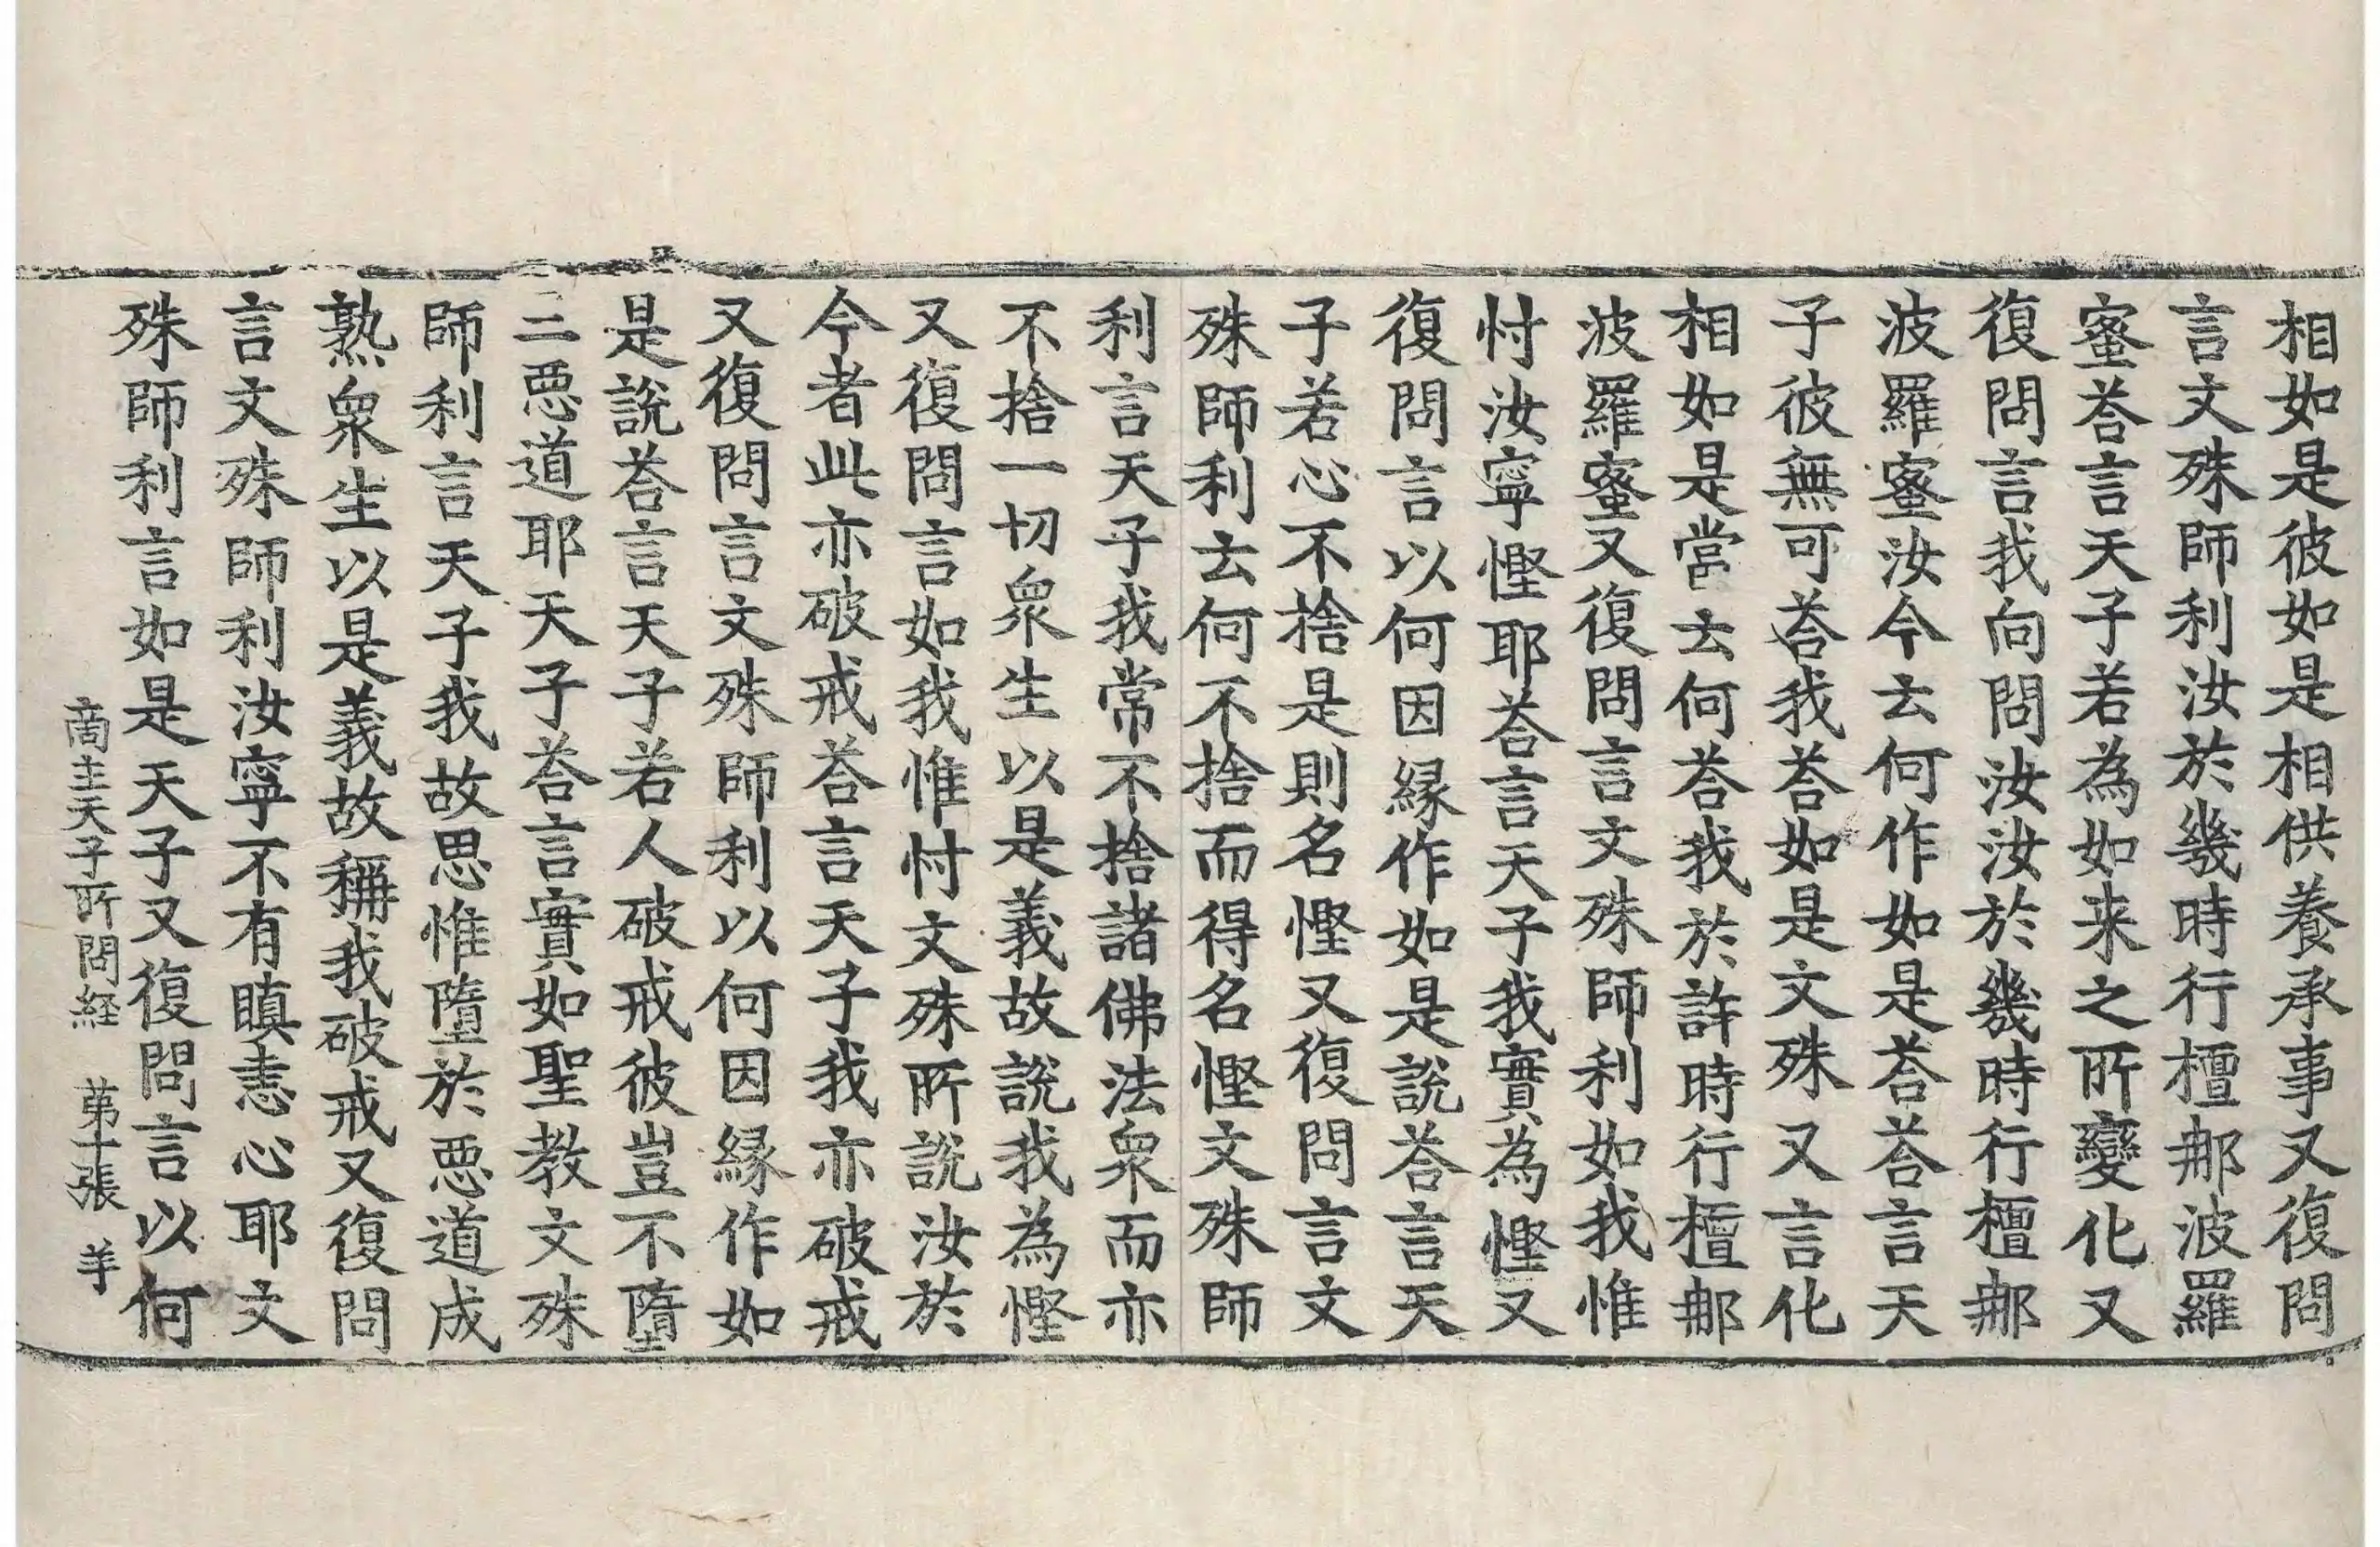 相如是彼如是相供養承事又復問
言文殊師利汝於幾時行檀那波羅
蜜荅言天子若為如来之所變化又
復問言我向問汝汝於幾時行檀那
波羅蜜汝今去何作如是荅荅言天
子彼無可荅我荅如是文殊又言化
相如是當去何荅我於許時行檀那
波羅蜜又復問言文殊師利如我惟
忖汝寧慳耶荅言天子我實為慳又
復問言以何因縁作如是說荅言天
子若心不捨是則名慳又復問言文
殊師利去何不捨而得名慳文殊師
利言天子我常不捨諸佛法衆而亦
不捨一切衆生以是義故說我為慳
又復問言如我惟忖文殊所說汝於
今者此亦破戒荅言天子我亦破戒
又復問言文殊師利以何因縁作如
是說荅言天子若人破戒彼豈不墮
三惡道耶天子荅言實如聖教文殊
師利言天子我故思惟墮於惡道成
熟衆生以是義故稱我破戒又復問
言文殊師利汝寧不有瞋恚心耶文
殊師利言如是天子又復問言以何
商主天子所問経 苐十張 羊